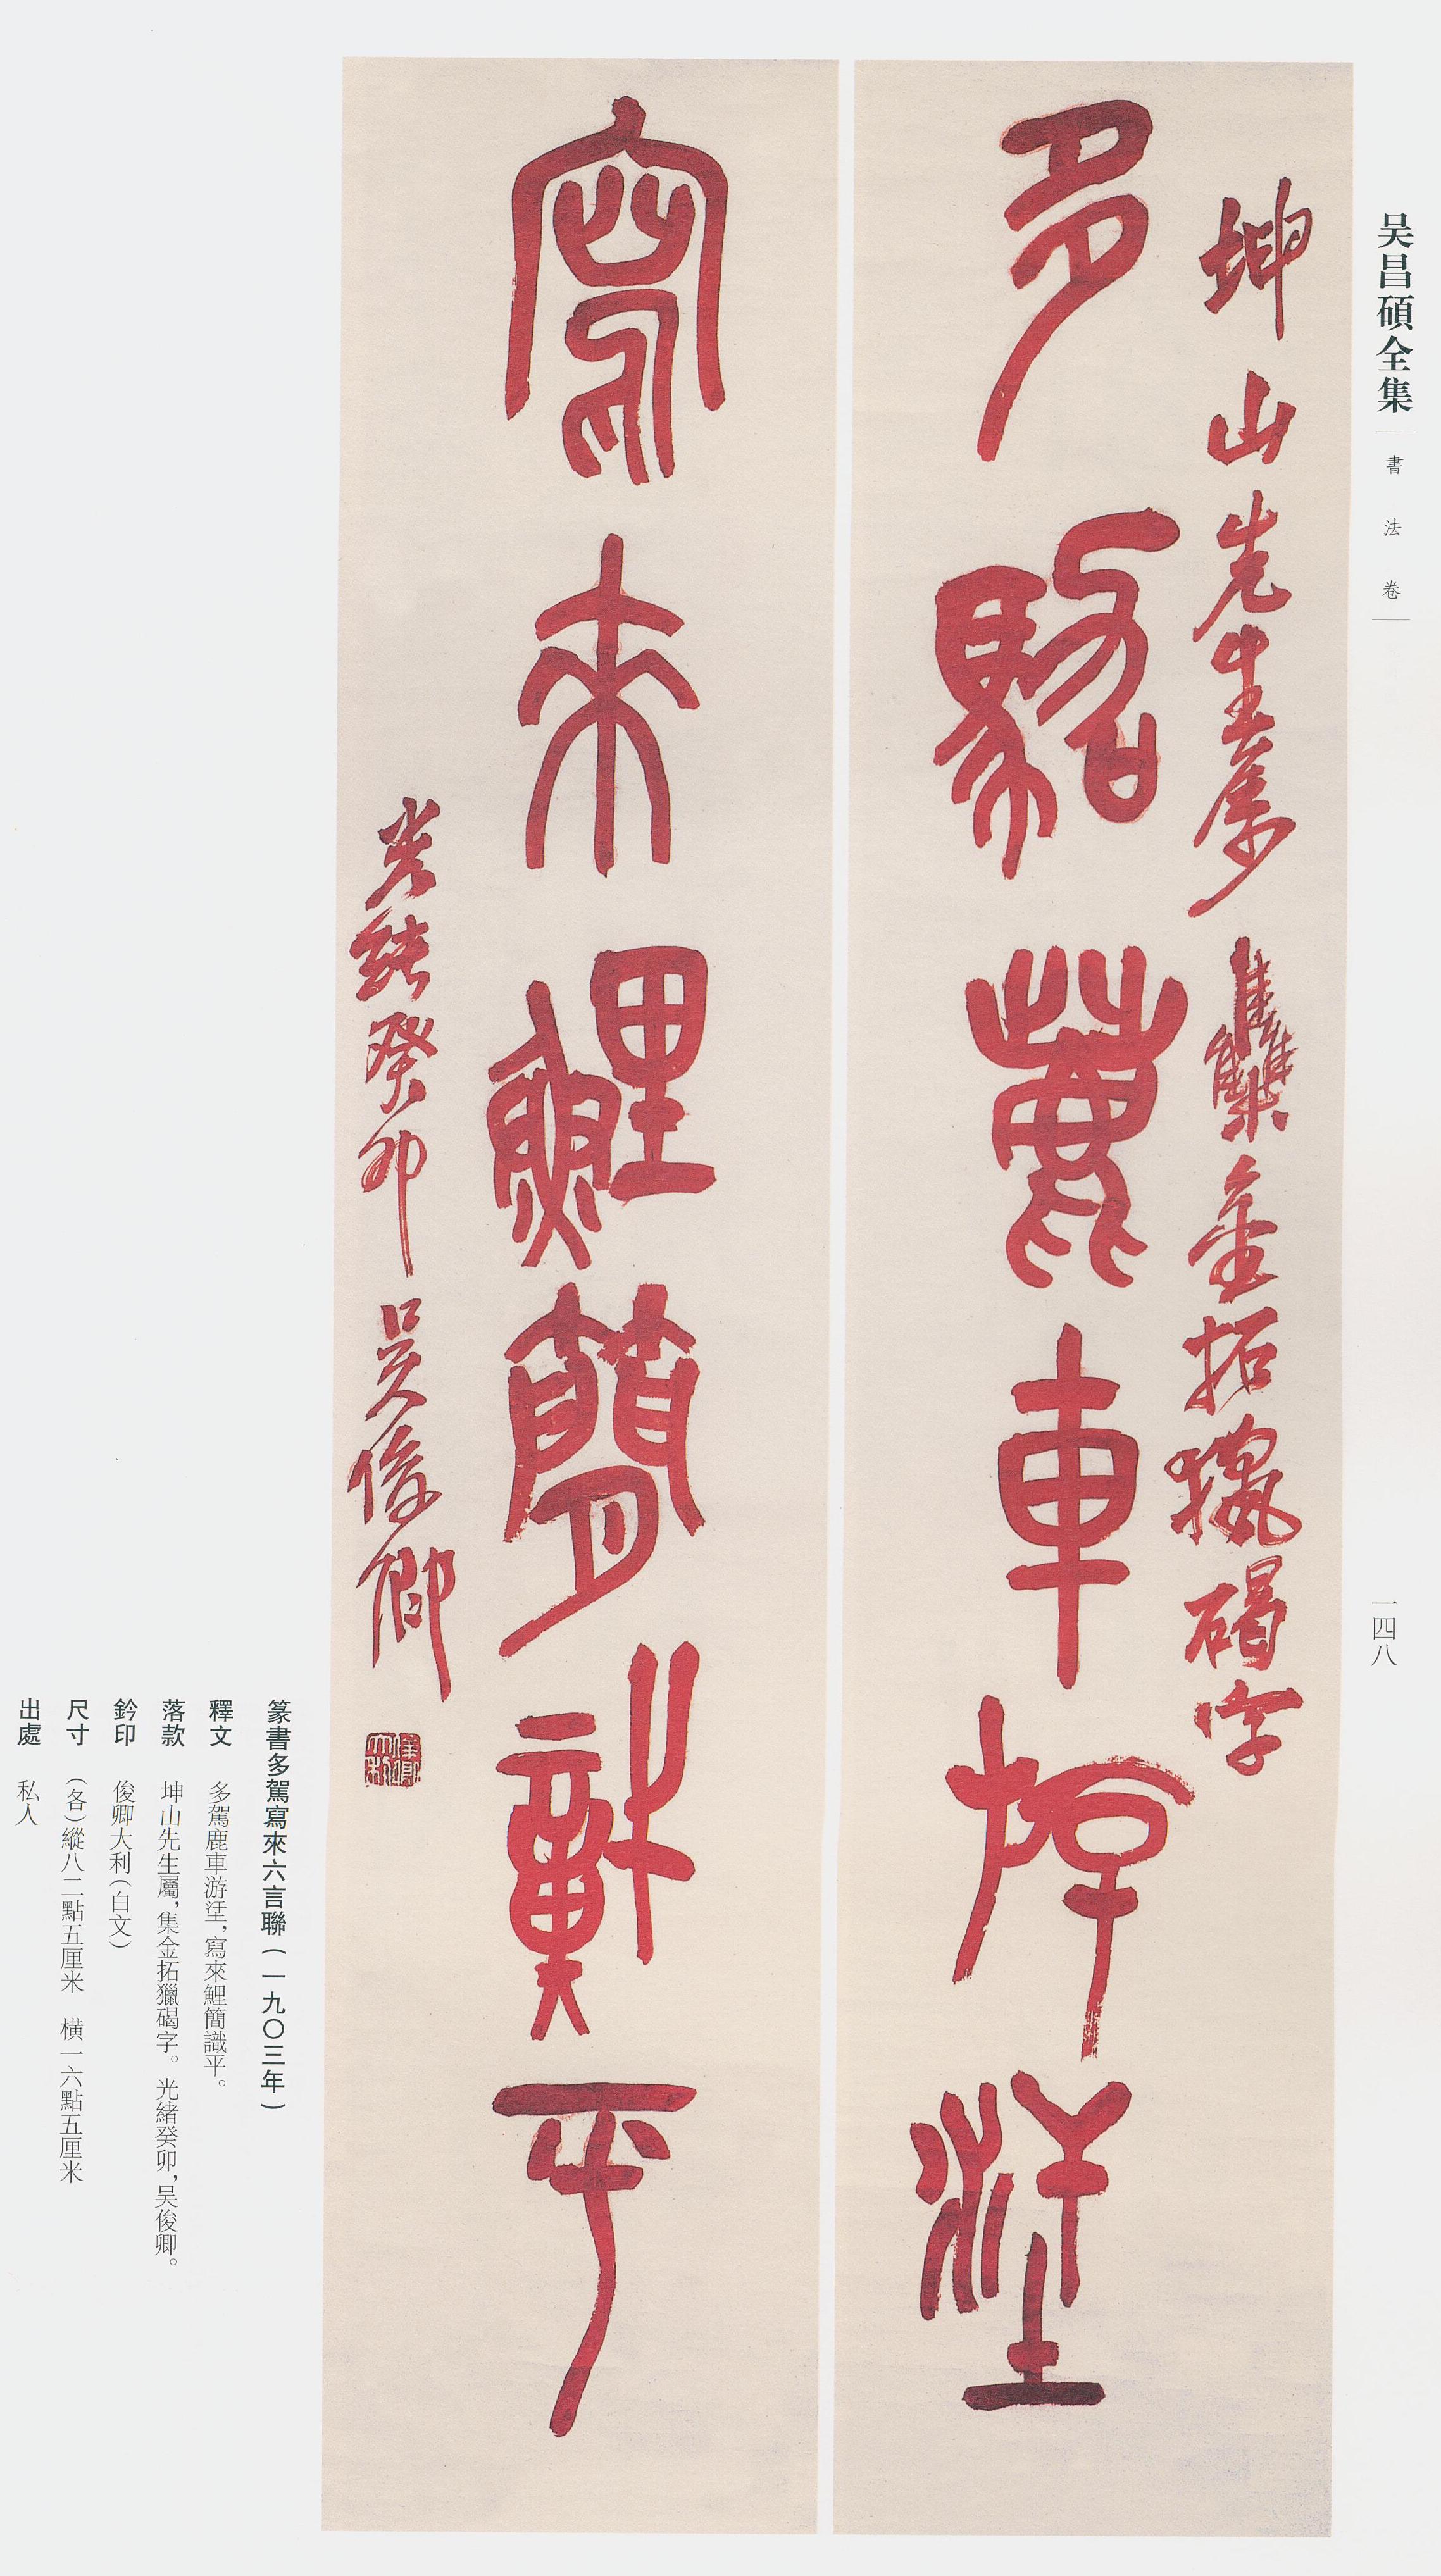 吴昌碩全集
書法卷
一四八
坤山先生屬 集金拓獵碣字
多駕鹿車游𣳫
寫來鯉簡識平
光緒癸卯 吴俊卿
俊卿大利
篆書多駕寫來六言聯(一九〇三年)
釋文 多駕鹿車游𣳫,寫來鯉簡識平。
落款 坤山先生屬,集金拓獵碣字。光緒癸卯,吴俊卿。
鈐印 俊卿大利(白文)
尺寸 (各)縱八二點五厘米 横一六點五厘米
出處 私人